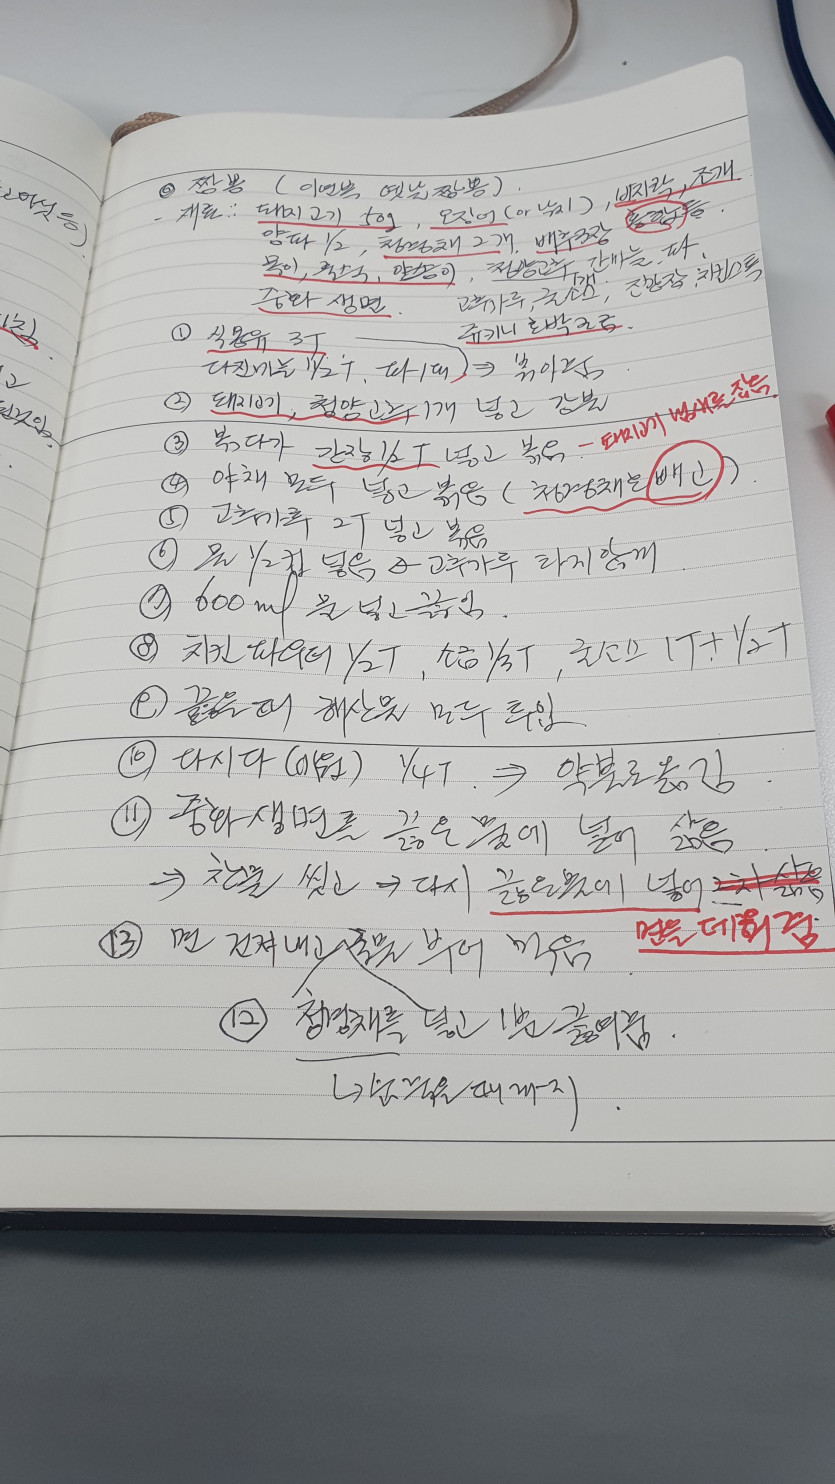 ◎ 짬뽕 (이연복 옛날짬뽕).
- 재료 : 돼지고기 50g, 오징어(or 낙지), 바지락, 조개
양파 1/2, 청경채 2개, 배추 3장 등.
목이, 죽순, 양송이, 청양고추 1개, 간마늘, 파,
중화 생면. 고추가루, 굴소스, 진간장, 치킨스톡
쥬키니 호박 조금.
① 식용유 3T
다진마늘 1/2T, 파 1대 ⇒ 볶아줌
② 돼지고기, 청양고추 1개 넣고 강불
③ 볶다가 간장 1/2T 넣고 볶음 - 돼지고기 냄새를 잡음
④ 야채 모두 넣고 볶음 (청경채는 빼고).
⑤ 고추가루 2T 넣고 볶음
⑥ 물 1/2컵 넣음 → 고추가루 타지않게
⑦ 600ml 물 넣고 끓임.
⑧ 치킨파우더 1/2T, 소금 1/3T, 굴소스 1T + 1/2T
⑨ 끓을때 해산물 모두 투입
⑩ 다시다 (미원) 1/4T ⇒ 약불로 옮김
⑪ 중화생면을 끓은 물에 넣어 삶음
→ 찬물 씻고 → 다시 끓은물에 넣어
면을 데워줌
⑬ 면 건져내고 국물 부어 먹음
⑫ 청경채를 넣고 1번 끓여줌.
↳ 숨죽을 때까지.